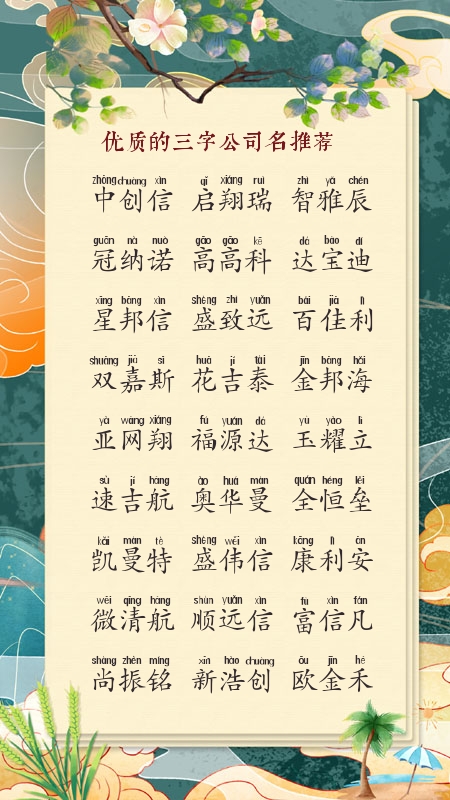 优质的三字公司名推荐
zhōng chuàng xìn qǐ xiáng ruì zhì yǎ chén
中创信 启翔瑞 智雅辰
guān nà nuò gāo gāo kē dá bǎo dí
冠纳诺 高高科 达宝迪
xīng bāng xìn shèng zhì yuǎn bǎi jiā lì
星邦信 盛致远 百佳利
shuāng jiā sī huā jí tài jīn bāng hǎi
双嘉斯 花吉泰 金邦海
yà wǎng xiáng fú yuán dá yù yào lì
亚网翔 福源达 玉耀立
sù jí háng ào huá màn quán héng lěi
速吉航 奥华曼 全恒垒
kǎi màn tè shèng wěi xìn kāng lì ān
凯曼特 盛伟信 康利安
wēi qīng háng shùn yuǎn xìn fù xìn fán
微清航 顺远信 富信凡
shàng zhèn míng xīn hào chuàng ōu jīn hé
尚振铭 新浩创 欧金禾